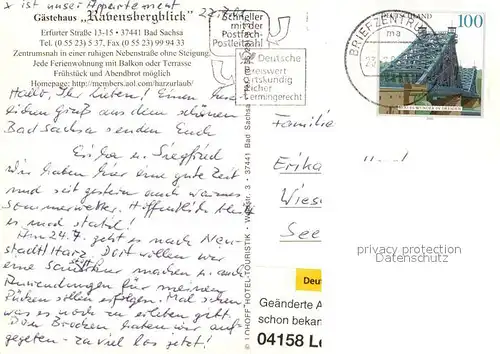 x ist unser Appartement 22.7.01
Gästehaus „Rabensbergblick"
Erfurter Straße 13-15 • 37441 Bad Sachsa
Tel. (0 55 23) 5 37, Fax (0 55 23) 99 94 33
Zentrumsnah in einer ruhigen Nebenstraße ohne Steigung.
Jede Ferienwohnung mit Balkon oder Terrasse
Frühstück und Abendbrot möglich
Homepage: http://members.aol.com/harzurlaub/
Hallo, Ihr Lieben! Einen
lieben Gruß aus dem schönen
Bad Sachsa senden Euch
Erika u. Siegfried
Wir haben hier eine gute Zeit
und seit gestern auch warmes
Sommerwetter. Hoffentlich bleibt
es mal stabil!
Am 24.7. geht es nach Neu-
stadt/Harz. Dort wollen wir
eine machen u. auch
Anwendungen für meinen
Rücken sollen erfolgen. Mal sehen
was es noch zu erleben gibt.
Den Brocken haben wir auf-
gegeben - zu viel los jetzt!
Schneller
mit der
Postfach-
Postleitzahl
Deutsche
preiswert
ortskundig
sicher
termingerecht
BRIEFZENTRUM
ma
DEUTSCHLAND
100
Familie
Erika
Wies
See
privacy protection
Datenschutz
Deut
Geänderte A
schon bekan
04158 Le